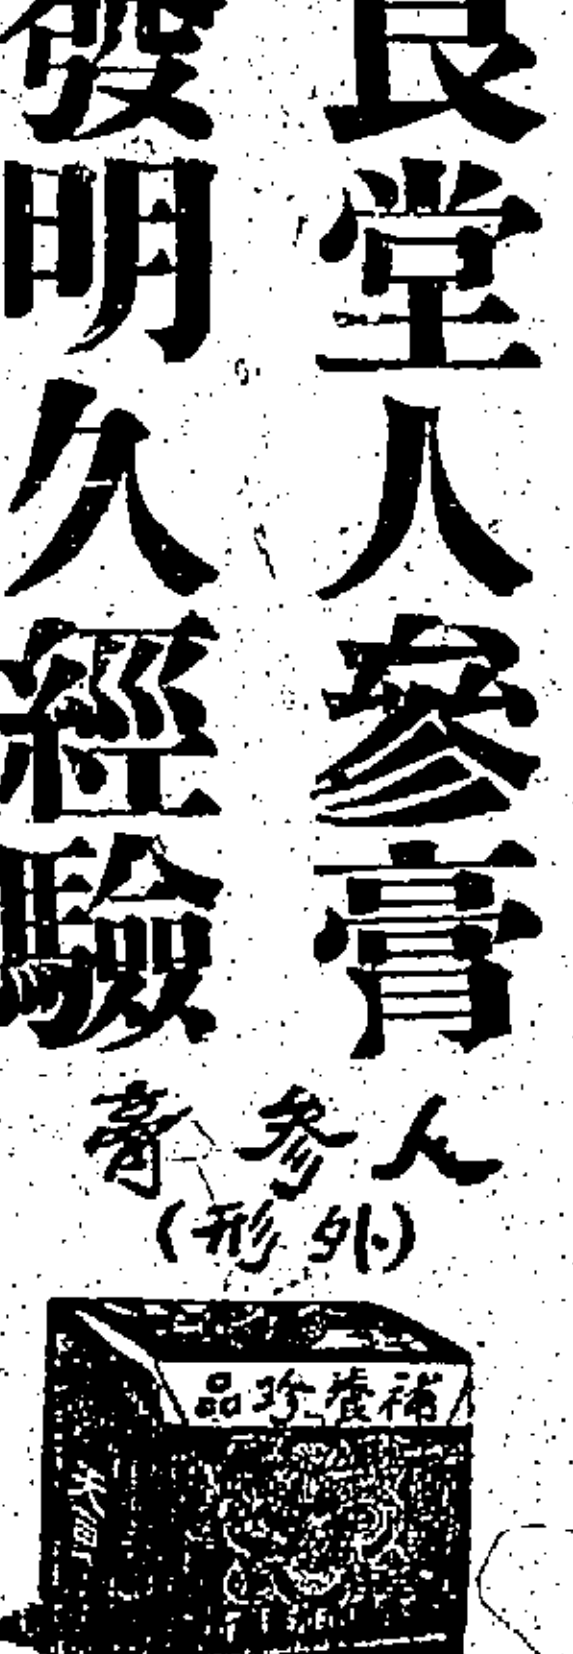 良堂人參膏
發明久經驗
人參膏
(外形)
補養珍品